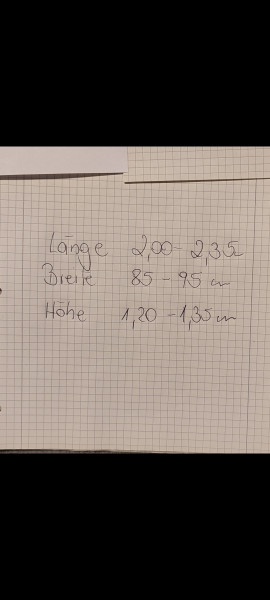 Länge 2,00 - 2,35
Breite 85 - 95 cm
Höhe 1,20 - 1,35 cm